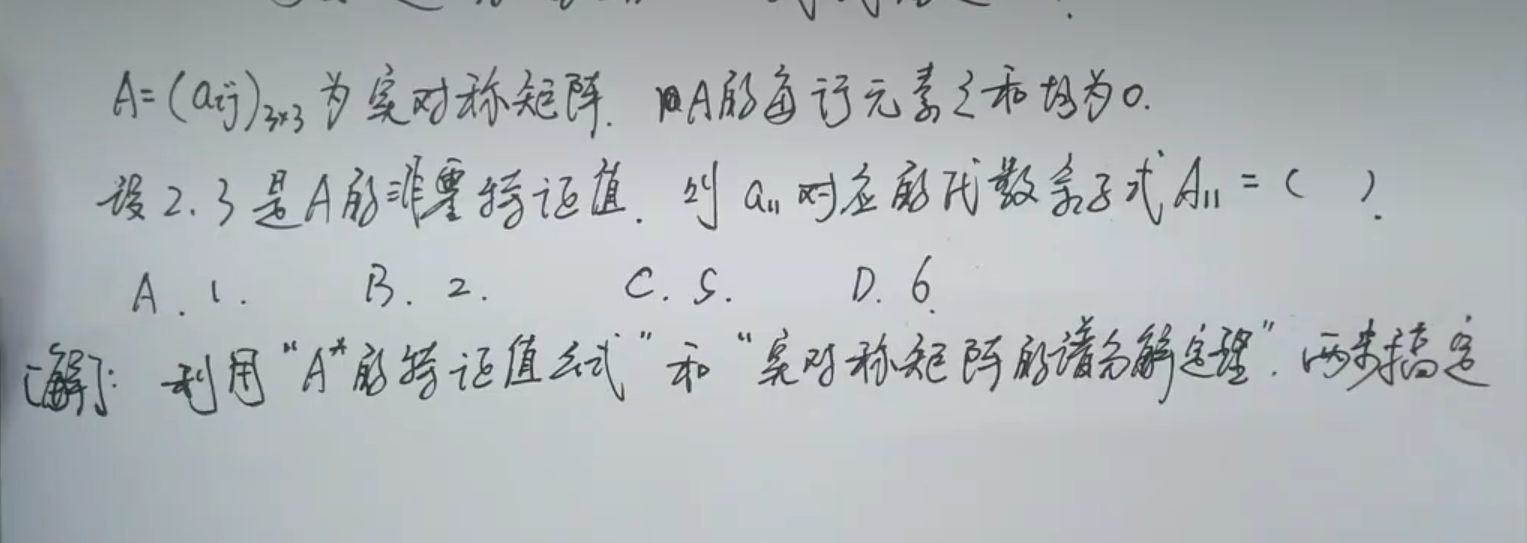 A=(aij)3×3 为实对称矩阵. 且A的每行元素之和均为0.
设2.3是A的非零特征值. 则 a11 对应的代数余子式 A11 = ( ).
A. 1. B. 2. C. 5. D. 6.
[解]: 利用"A*的特征值公式"和"实对称矩阵的谱分解定理". 两步搞定